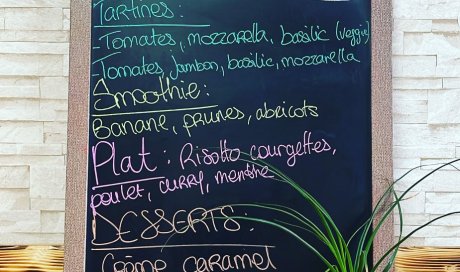 Tartines:
-Tomates, mozzarella, basilic (veggie)
-Tomates, jambon, basilic, mozzarella
Smoothie:
Banane, prunes, abricots
Plat: Risotto courgettes,
poulet, curry, menthe
DESSERTS:
Crème caramel